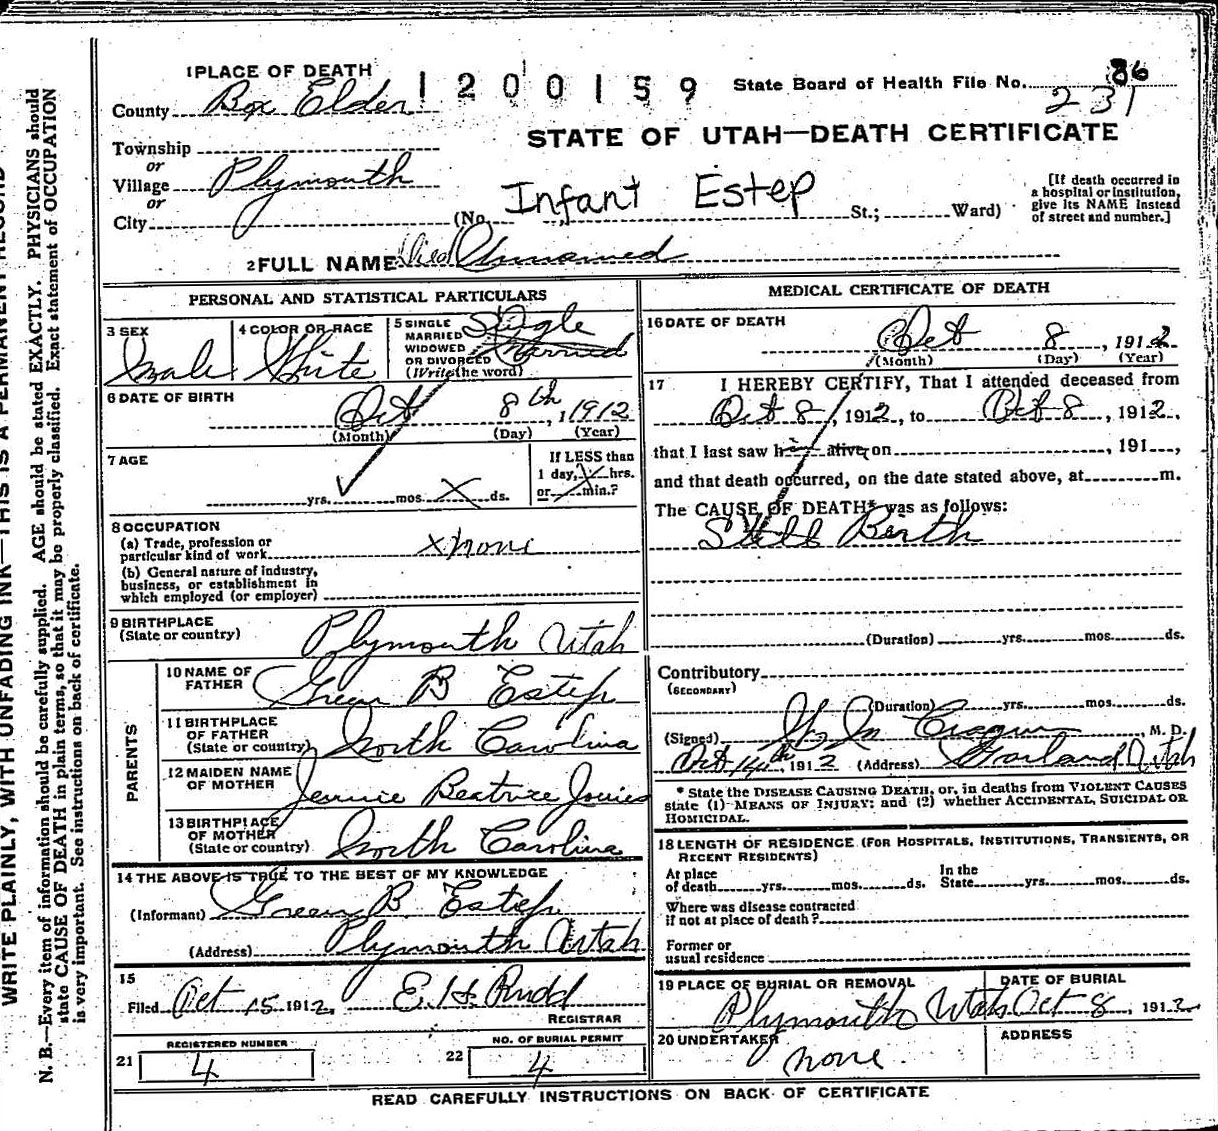 WRITE PLAINLY, WITH UNFADING INK—THIS IS A PERMANENT RECORD
N. B.—Every item of information should be carefully supplied. AGE should be stated EXACTLY. PHYSICIANS should
state CAUSE OF DEATH in plain terms, so that it may be properly classified. Exact statement of OCCUPATION
is very important. See instructions on back of certificate.
1 PLACE OF DEATH
1200159
State Board of Health File No. 86
231
County Box Elder
STATE OF UTAH—DEATH CERTIFICATE
Township
or
Village Plymouth
or
City
(No. Infant Estep St.; Ward)
[If death occurred in
a hospital or institution,
give its NAME instead
of street and number.]
2 FULL NAME Died Unnamed
PERSONAL AND STATISTICAL PARTICULARS
3 SEX
Male
4 COLOR OR RACE
White
5 SINGLE
MARRIED
WIDOWED
OR DIVORCED
(Write the word)
Single
Married
6 DATE OF BIRTH
Oct 8th, 1912
(Month) (Day) (Year)
7 AGE
yrs. mos. X ds.
If LESS than
1 day, hrs.
or min.?
8 OCCUPATION
(a) Trade, profession or
particular kind of work x none
(b) General nature of industry,
business, or establishment in
which employed (or employer)
9 BIRTHPLACE
(State or country) Plymouth Utah
PARENTS
10 NAME OF
FATHER Green B Estep
11 BIRTHPLACE
OF FATHER
(State or country) North Carolina
12 MAIDEN NAME
OF MOTHER Jennie Beatrice
13 BIRTHPLACE
OF MOTHER
(State or country) North Carolina
14 THE ABOVE IS TRUE TO THE BEST OF MY KNOWLEDGE
(Informant) Green B Estep
(Address) Plymouth Utah
15
Filed Oct 15 1912, E. H. Rudd
REGISTRAR
REGISTERED NUMBER
21 4
NO. OF BURIAL PERMIT
22 4
MEDICAL CERTIFICATE OF DEATH
16 DATE OF DEATH
Oct 8, 1912
(Month) (Day) (Year)
17 I HEREBY CERTIFY, That I attended deceased from
Oct 8, 1912, to Oct 8, 1912,
that I last saw him alive on , 191 ,
and that death occurred, on the date stated above, at m.
The CAUSE OF DEATH* was as follows:
Still Birth
(Duration) yrs. mos. ds.
Contributory
(SECONDARY)
(Duration) yrs. mos. ds.
(Signed) Cragun, M. D.
Oct 14th, 1912 (Address) Garland Utah
* State the DISEASE CAUSING DEATH, or, in deaths from VIOLENT CAUSES
state (1) MEANS OF INJURY; and (2) whether ACCIDENTAL, SUICIDAL OR
HOMICIDAL.
18 LENGTH OF RESIDENCE (FOR HOSPITALS, INSTITUTIONS, TRANSIENTS, OR
RECENT RESIDENTS)
At place
of death yrs. mos. ds.
In the
State yrs. mos. ds.
Where was disease contracted
if not at place of death?
Former or
usual residence
19 PLACE OF BURIAL OR REMOVAL
Plymouth Utah
DATE OF BURIAL
Oct 8, 1912
20 UNDERTAKER
none.
ADDRESS
READ CAREFULLY INSTRUCTIONS ON BACK OF CERTIFICATE